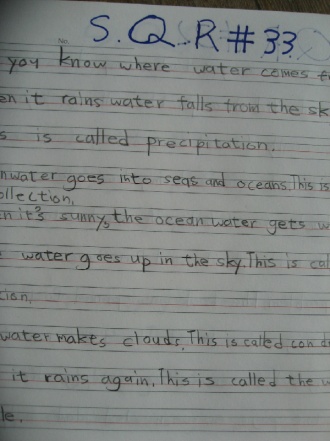 No.
S.Q.R # 33
you know where water comes
en it rains water falls from the sk
s is called precipitation.
n water goes into seas and oceans. This is
ollection.
n it's sunny, the ocean water gets w
water goes up in the sky. This is cal
tion.
water makes clouds. This is called con d
it rains again. This is called the w
le.